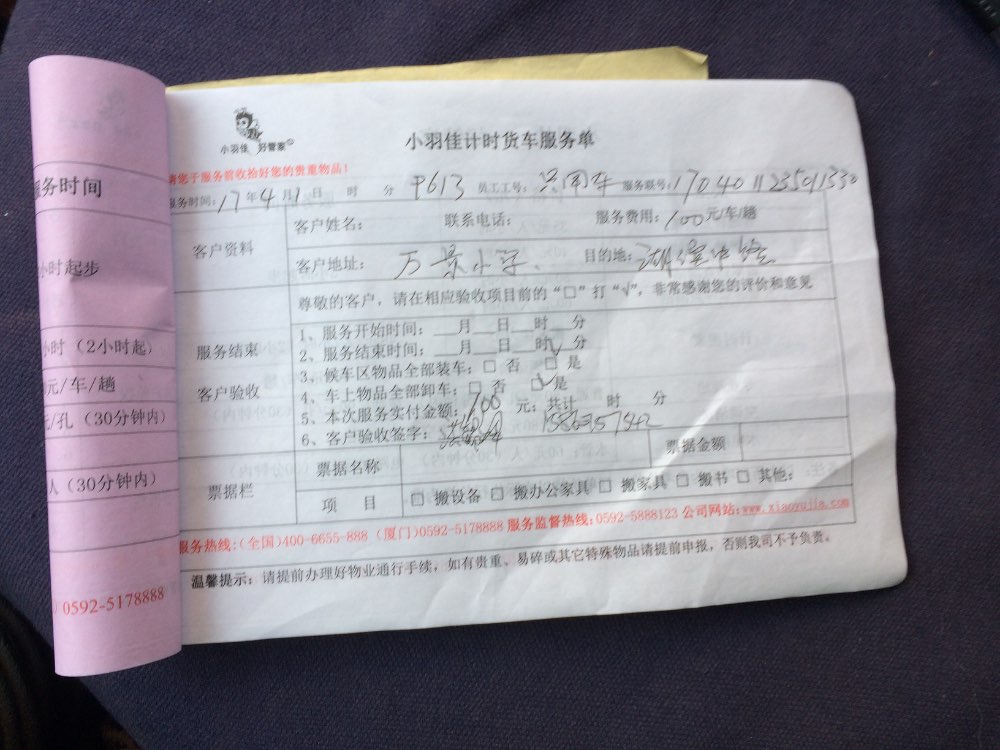 小羽佳 好管家
小羽佳计时货车服务单
请您于服务前收拾好您的贵重物品!
服务时间：17年4月1日 时 分 P613 员工工号： 服务联号：170401123501330
客户资料
客户姓名： 联系电话： 服务费用：100元/车/趟
客户地址：万景小学、 目的地：
尊敬的客户，请在相应验收项目前的“□”打“√”，非常感谢您的评价和意见
服务结束
客户验收
1、服务开始时间：__月__日__时__分
2、服务结束时间：__月__日__时__分
3、候车区物品全部装车：□ 否 ☑ 是
4、车上物品全部卸车：□ 否 ☑ 是
5、本次服务实付金额：100 元；共计 时 分
6、客户验收签字：
票据栏
票据名称 票据金额
项 目 □ 搬设备 □ 搬办公家具 □ 搬家具 □ 搬书 □ 其他：
服务热线：(全国)400-6655-888 (厦门)0592-5178888 服务监督热线：0592-5888123 公司网站：www.xiaoyujia.com
温馨提示：请提前办理好物业通行手续，如有贵重、易碎或其它特殊物品请提前申报，否则我司不予负责。
服务时间
小时起步
小时（2小时起）
元/车/趟
元/孔（30分钟内）
人（30分钟内）
0592-5178888